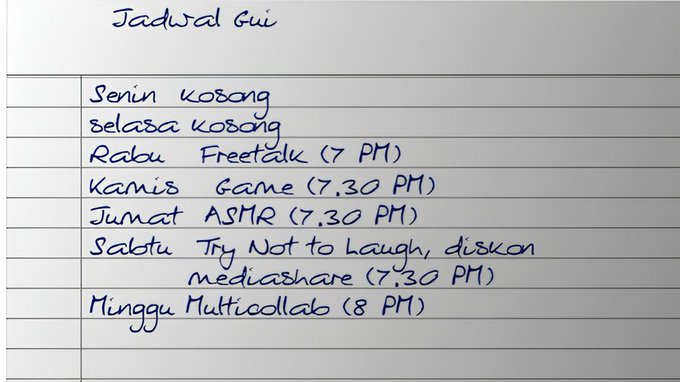 Jadwal Gui
Senin kosong
selasa kosong
Rabu Freetalk (7 PM)
Kamis Game (7.30 PM)
Jumat ASMR (7.30 PM)
Sabtu Try Not to Laugh, diskon
mediashare (7.30 PM)
Minggu Multicollab (8 PM)